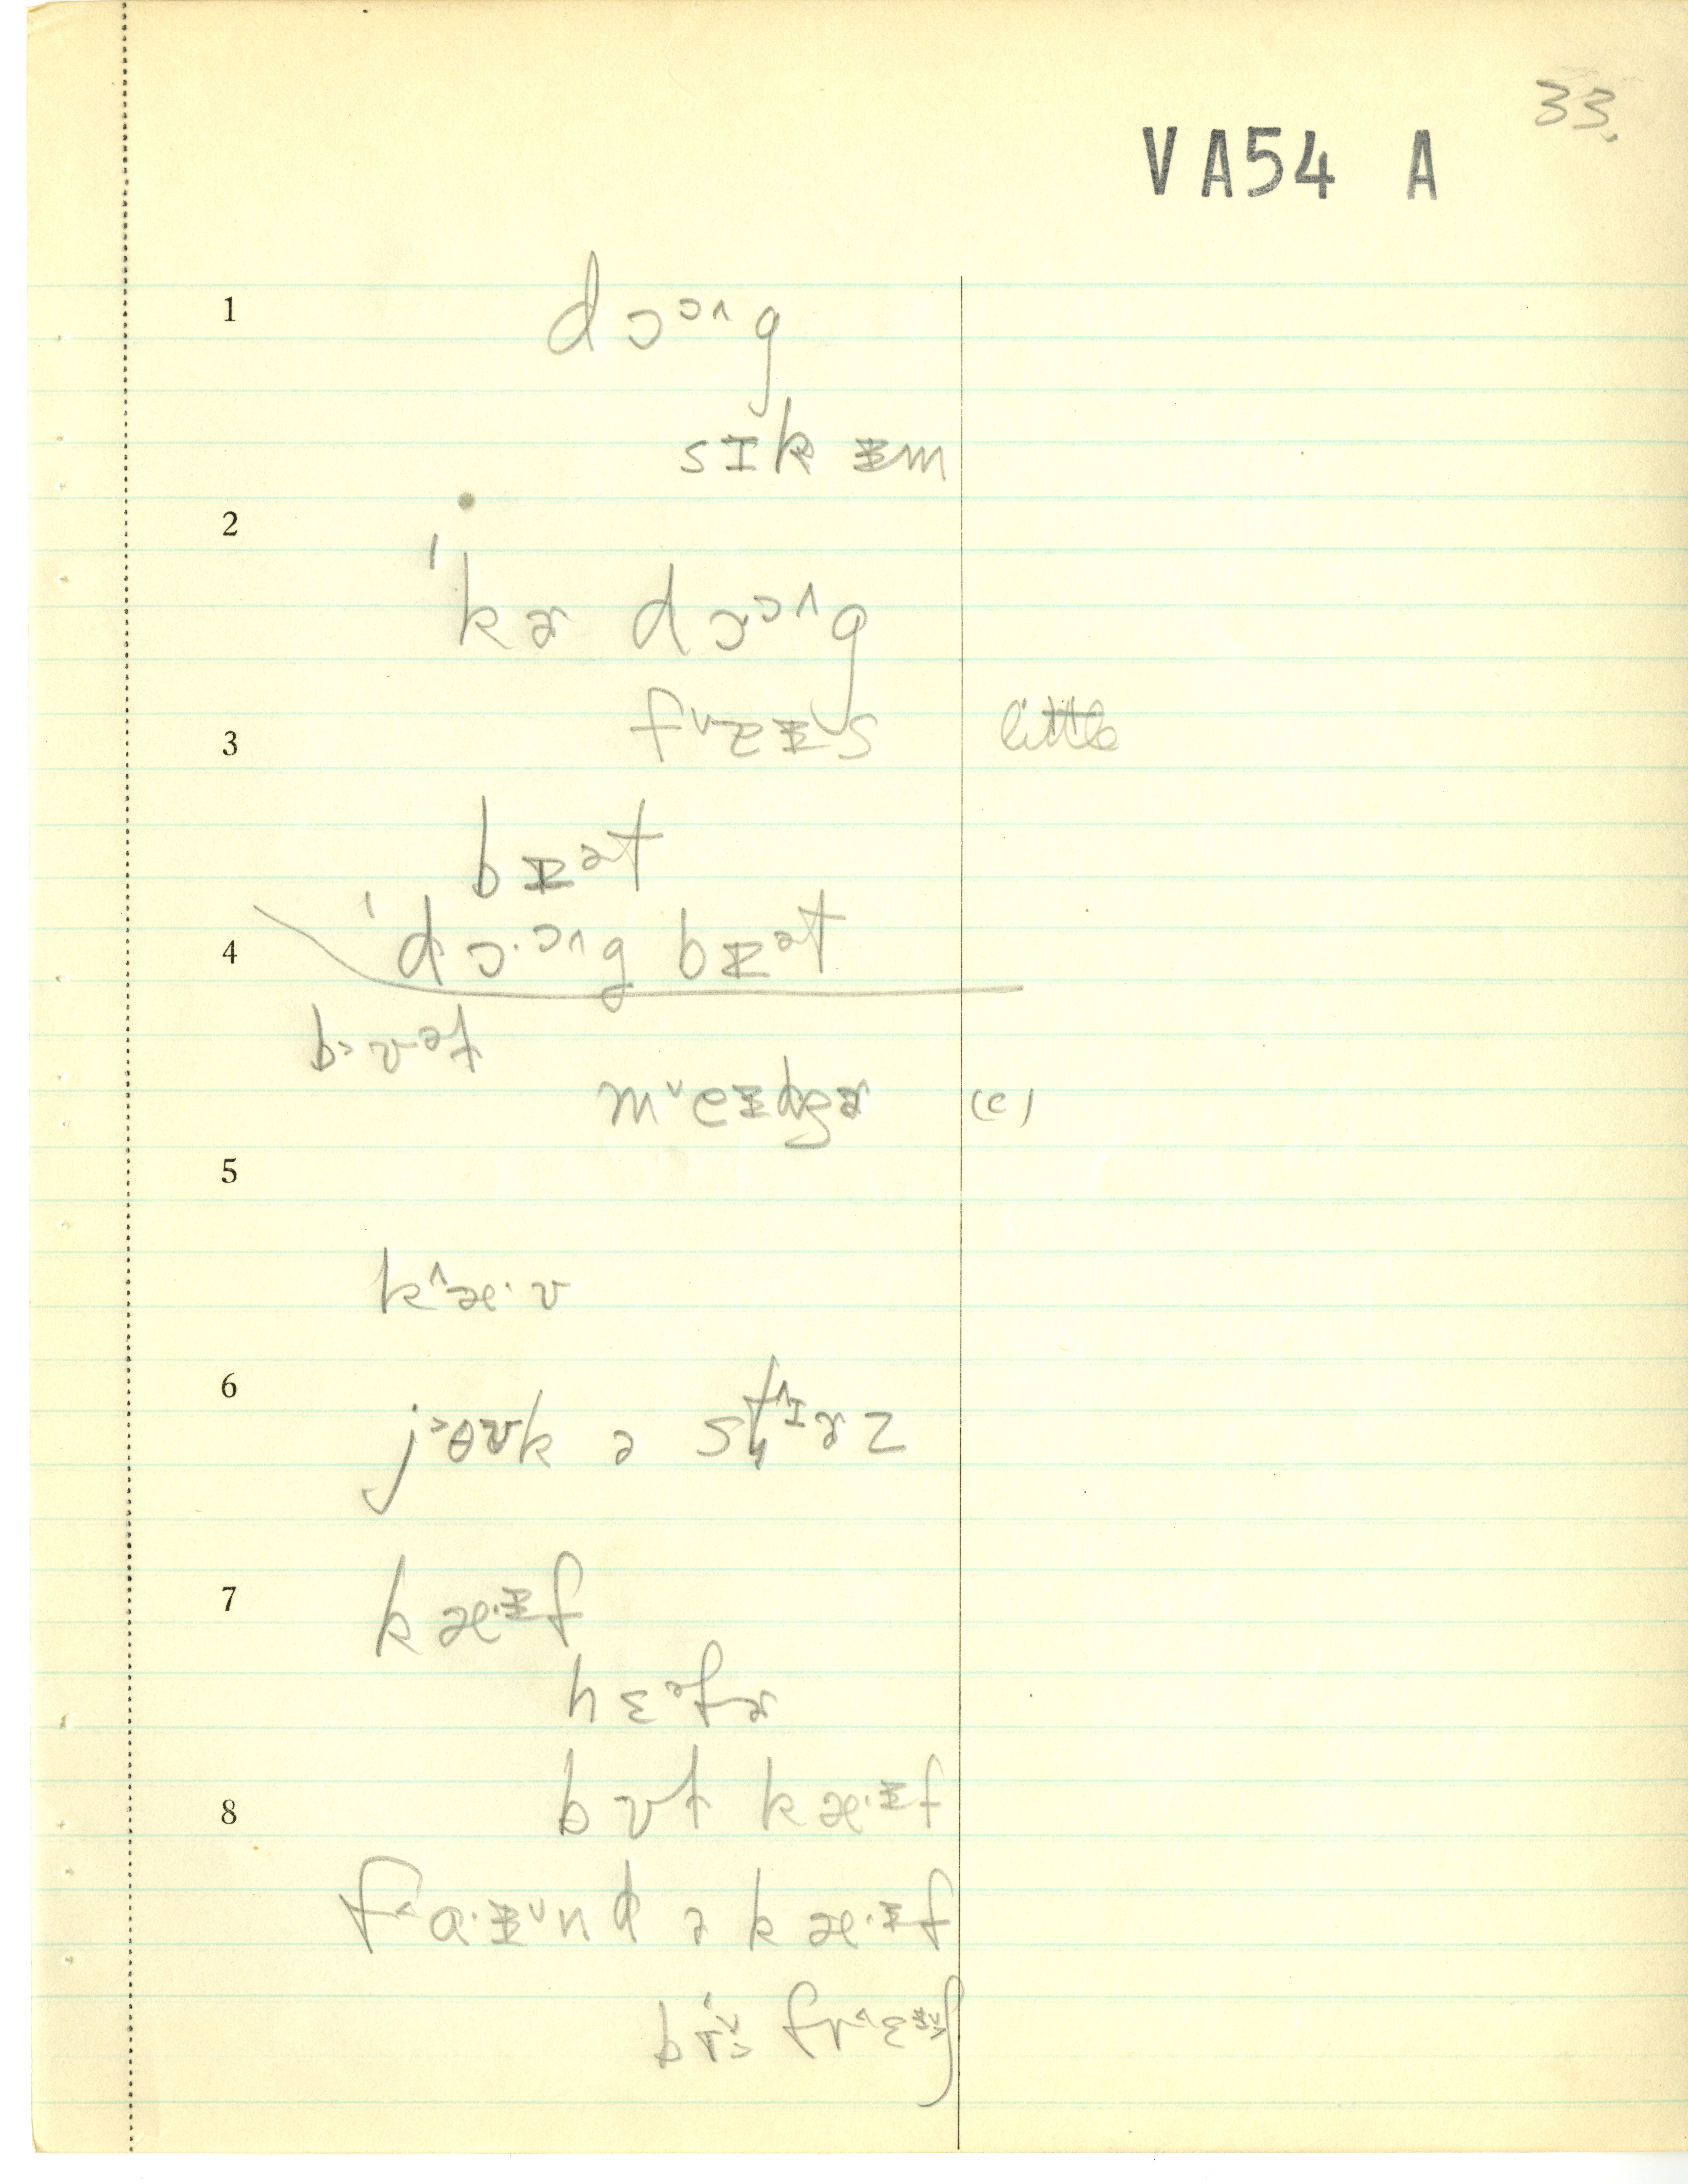 33.
VA54 A
1 dɔᵓ^g
sɪk ɪ̵m
2
ˈkɚ dɔᵓ^g
3 fˇɪ̵s little
bɪ̵ᵊt
4 ˈdɔ·ᵓ^g bɪ̵ᵊt
b>ʊᵊt
mˇeɪ̵dʒɚ (c)
5
k^æ·ʊ
6
j>ɵʊk ə st^ɪɚz
7 kæ·ɪ̵f
hɛᵊfɚ
8 bʊt kæ·ɪ̵f
f<ɑ·ɪ̵ˇnd ə kæ·ɪ̵f